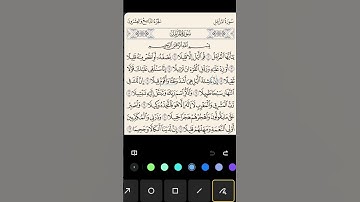 سورة المزمل الجزء التاسع والعشرون
سورة المزمل
بِسْمِ ٱللَّهِ ٱلرَّحْمَٰنِ ٱلرَّحِيمِ
يَٰٓأَيُّهَا ٱلْمُزَّمِّلُ ١ قُمِ ٱلَّيْلَ إِلَّا قَلِيلًا ٢ نِّصْفَهُۥٓ أَوِ ٱنقُصْ مِنْهُ قَلِيلًا ٣
أَوْ زِدْ عَلَيْهِ وَرَتِّلِ ٱلْقُرْءَانَ تَرْتِيلًا ٤ إِنَّا سَنُلْقِى عَلَيْكَ قَوْلًا
ثَقِيلًا ٥ إِنَّ نَاشِئَةَ ٱلَّيْلِ هِىَ أَشَدُّ وَطْـًٔا وَأَقْوَمُ قِيلًا ٦ إِنَّ لَكَ
فِى ٱلنَّهَارِ سَبْحًا طَوِيلًا ٧ وَٱذْكُرِ ٱسْمَ رَبِّكَ وَتَبَتَّلْ إِلَيْهِ تَبْتِيلًا ٨
رَّبُّ ٱلْمَشْرِقِ وَٱلْمَغْرِبِ لَآ إِلَٰهَ إِلَّا هُوَ فَٱتَّخِذْهُ وَكِيلًا ٩ وَٱصْبِرْ
عَلَىٰ مَا يَقُولُونَ وَٱهْجُرْهُمْ هَجْرًا جَمِيلًا ١٠ وَذَرْنِى وَٱلْمُكَذِّبِينَ
أُو۟لِى ٱلنَّعْمَةِ وَمَهِّلْهُمْ قَلِيلًا ١١ إِنَّ لَدَيْنَآ أَنكَالًا وَجَحِيمًا ١٢